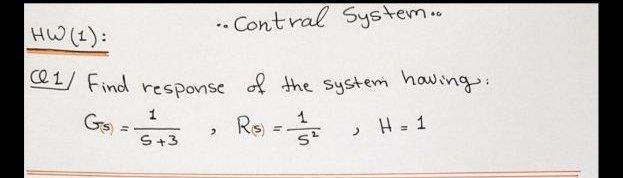 .. Contral System ..
HW(1):
Q1/ Find response of the system having:
G(s) = 1/(S+3) , R(s) = 1/S² , H = 1